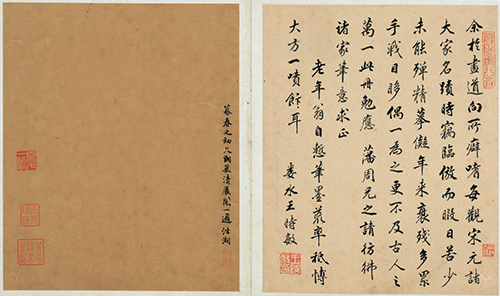 余於畫道向所癖嗜每觀宋元諸
大家名蹟時竊臨倣而暇日苦少
未能殫精摹儗年來衰殘多累
手戰目眵偶一為之更不及古人之
萬一此冊勉應 藩周兄之請彷彿
諸家筆意求正
老年翁自慙筆墨率祗博
大方一噴飯耳
婁水王時敏
暮春之初天朗氣清展閱一過